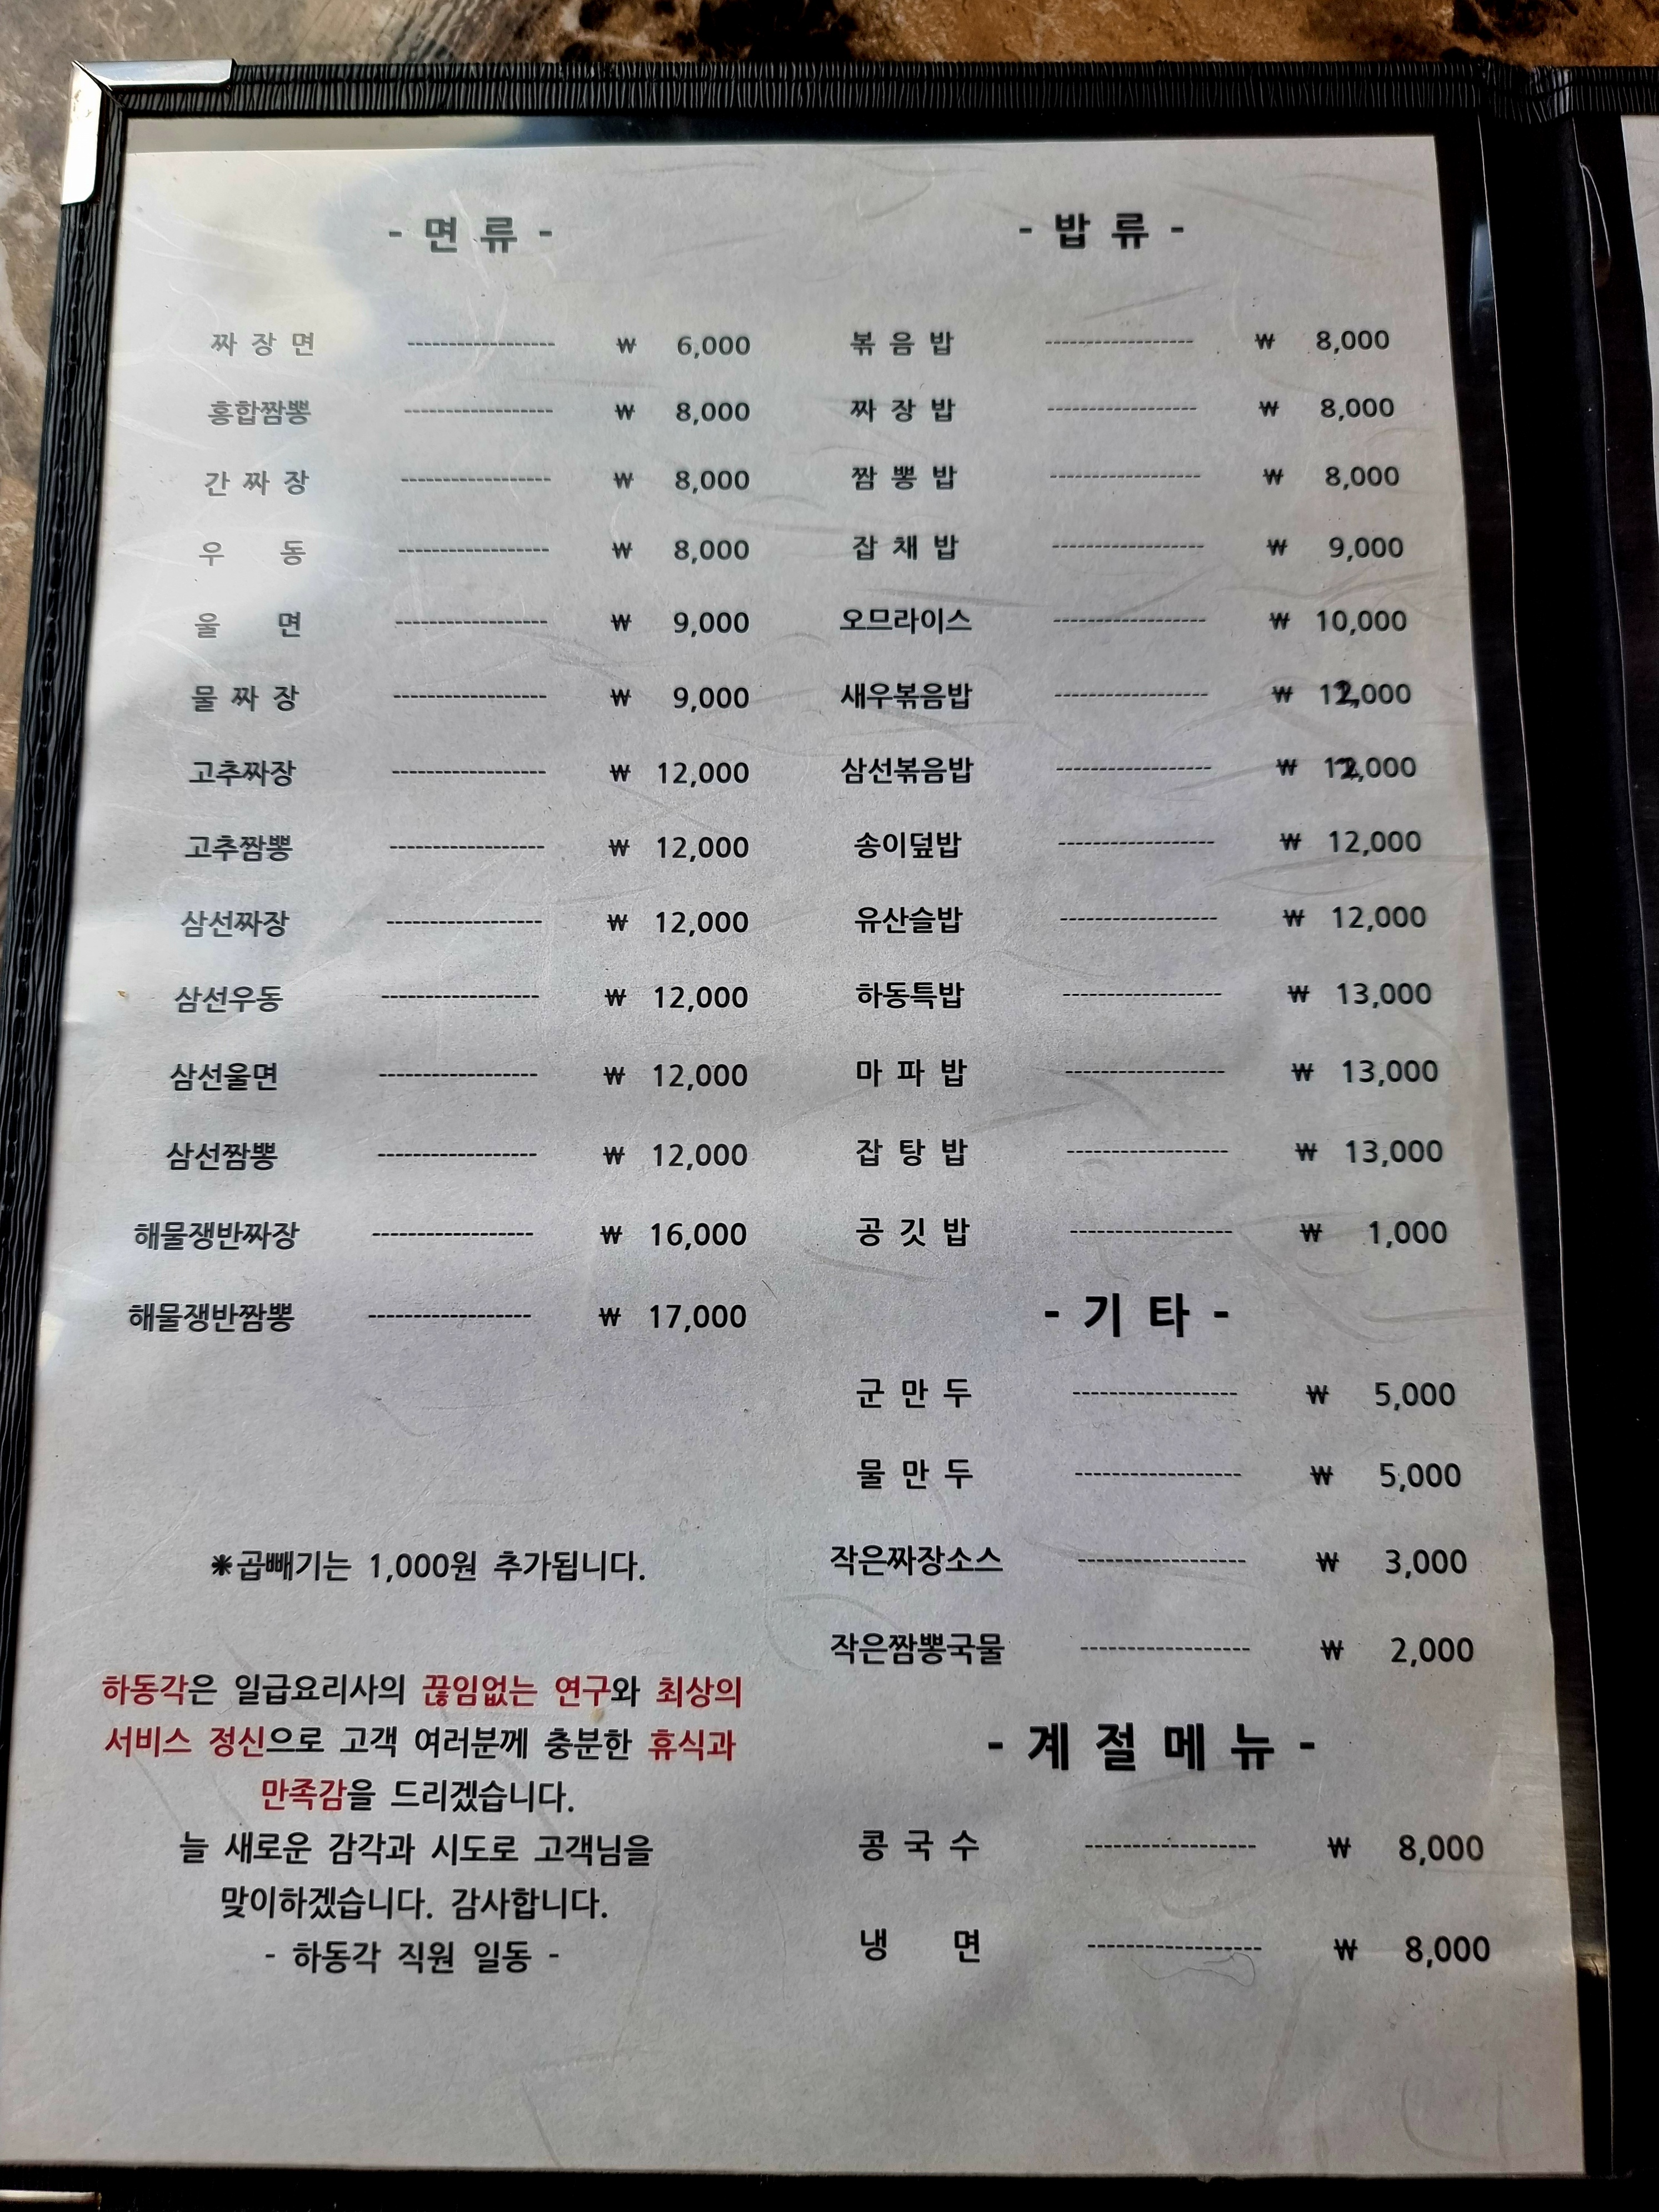 - 면 류 -
짜 장 면 ------------------ ₩ 6,000
홍합짬뽕 ------------------ ₩ 8,000
간 짜 장 ------------------ ₩ 8,000
우 동 ------------------ ₩ 8,000
울 면 ------------------ ₩ 9,000
물 짜 장 ------------------ ₩ 9,000
고추짜장 ------------------ ₩ 12,000
고추짬뽕 ------------------ ₩ 12,000
삼선짜장 ------------------ ₩ 12,000
삼선우동 ------------------ ₩ 12,000
삼선울면 ------------------ ₩ 12,000
삼선짬뽕 ------------------ ₩ 12,000
해물쟁반짜장 ------------------ ₩ 16,000
해물쟁반짬뽕 ------------------ ₩ 17,000
※곱빼기는 1,000원 추가됩니다.
하동각은 일급요리사의 끊임없는 연구와 최상의
서비스 정신으로 고객 여러분께 충분한 휴식과
만족감을 드리겠습니다.
늘 새로운 감각과 시도로 고객님을
맞이하겠습니다. 감사합니다.
- 하동각 직원 일동 -
- 밥 류 -
볶 음 밥 ------------------ ₩ 8,000
짜 장 밥 ------------------ ₩ 8,000
짬 뽕 밥 ------------------ ₩ 8,000
잡 채 밥 ------------------ ₩ 9,000
오므라이스 ------------------ ₩ 10,000
새우볶음밥 ------------------ ₩ 12,000
삼선볶음밥 ------------------ ₩ 12,000
송이덮밥 ------------------ ₩ 12,000
유산슬밥 ------------------ ₩ 12,000
하동특밥 ------------------ ₩ 13,000
마 파 밥 ------------------ ₩ 13,000
잡 탕 밥 ------------------ ₩ 13,000
공 깃 밥 ------------------ ₩ 1,000
- 기 타 -
군 만 두 ------------------ ₩ 5,000
물 만 두 ------------------ ₩ 5,000
작은짜장소스 ------------------ ₩ 3,000
작은짬뽕국물 ------------------ ₩ 2,000
- 계 절 메 뉴 -
콩 국 수 ------------------ ₩ 8,000
냉 면 ------------------ ₩ 8,000